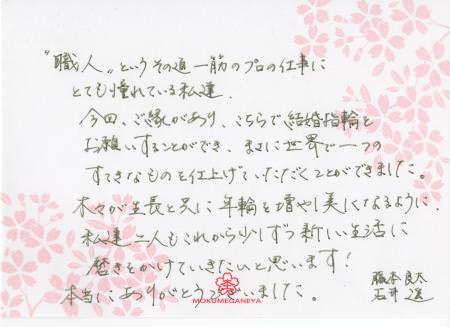 "職人"というその道一筋のプロの仕事に
とても憧れている私達.
今回、ご縁があり、こちらで結婚指輪を
お願いすることができ、まさに世界で一つの
すてきなものを仕上げていただくことができました。
木々が生長と共に年輪を増やし美しくなるように、
私達二人もこれから少しずつ新しい生活に
磨きをかけていきたいと思います!
本当にありがとうございました。
藤本 良太
石井
MOKUMEGANEYA